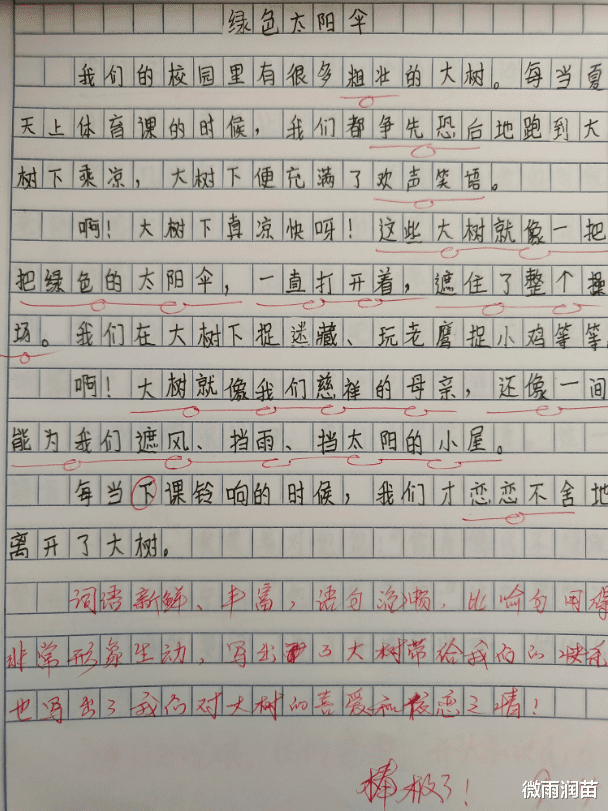 绿色太阳伞
我们的校园里有很多粗壮的大树。每当夏
天上体育课的时候，我们都争先恐后地跑到大
树下乘凉，大树下便充满了欢声笑语。
啊！大树下真凉快呀！这些大树就像一把
把绿色的太阳伞，一直打开着，遮住了整个操
场。我们在大树下捉迷藏、玩老鹰捉小鸡等等
啊！大树就像我们慈祥的母亲，还像一间
能为我们遮风、挡雨、挡太阳的小屋。
每当下课铃响的时候，我们才恋恋不舍地
离开了大树。
词语新鲜、丰富，语句流顺，比喻句用得
非常形象生动，写出了大树带给我们的快乐
也写出了我们对大树的喜爱和依恋之情！
棒极了！
微雨润苗